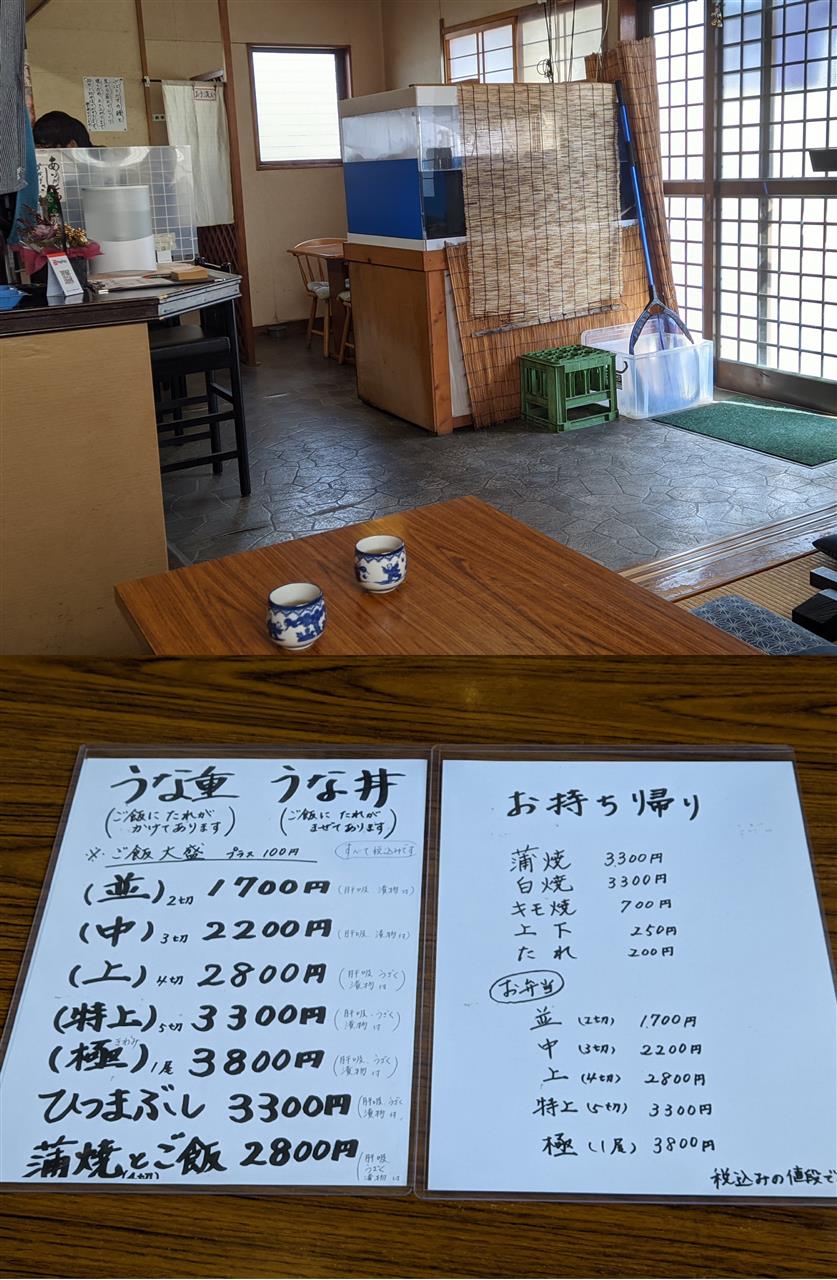 お手洗い
うな重 うな丼
(ご飯に たれが かけてあります) (ご飯に たれが まぜてあります)
※ご飯大盛 プラス100円 すべて税込みです
(並)2切 1700円 (肝吸 漬物 付)
(中)3切 2200円 (肝吸 漬物 付)
(上)4切 2800円 (肝吸 うざく 漬物 付)
(特上)5切 3300円 (肝吸 うざく 漬物 付)
きわみ
(極)1尾 3800円 (肝吸 うざく 漬物 付)
ひつまぶし 3300円 (肝吸 うざく 漬物 付)
蒲焼とご飯 2800円 (肝吸 うざく 漬物 付)
(4切)
お持ち帰り
蒲焼 3300円
白焼 3300円
キモ焼 700円
上下 250円
たれ 200円
お弁当
並 (2切) 1,700円
中 (3切) 2200円
上 (4切) 2800円
特上 (5切) 3300円
極 (1尾) 3800円
税込みの値段で